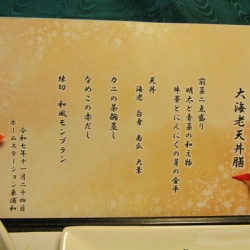 大海老天丼膳
前菜二点盛り
明太と青菜の和え物
牛蒡とにんにくの芽の金平
天丼
海老 白身 南瓜 大葉
カニの茶碗蒸し
なめこの赤だし
縁切 和風モンブラン
令和七年十一月二十四日
ホームステーション東浦和